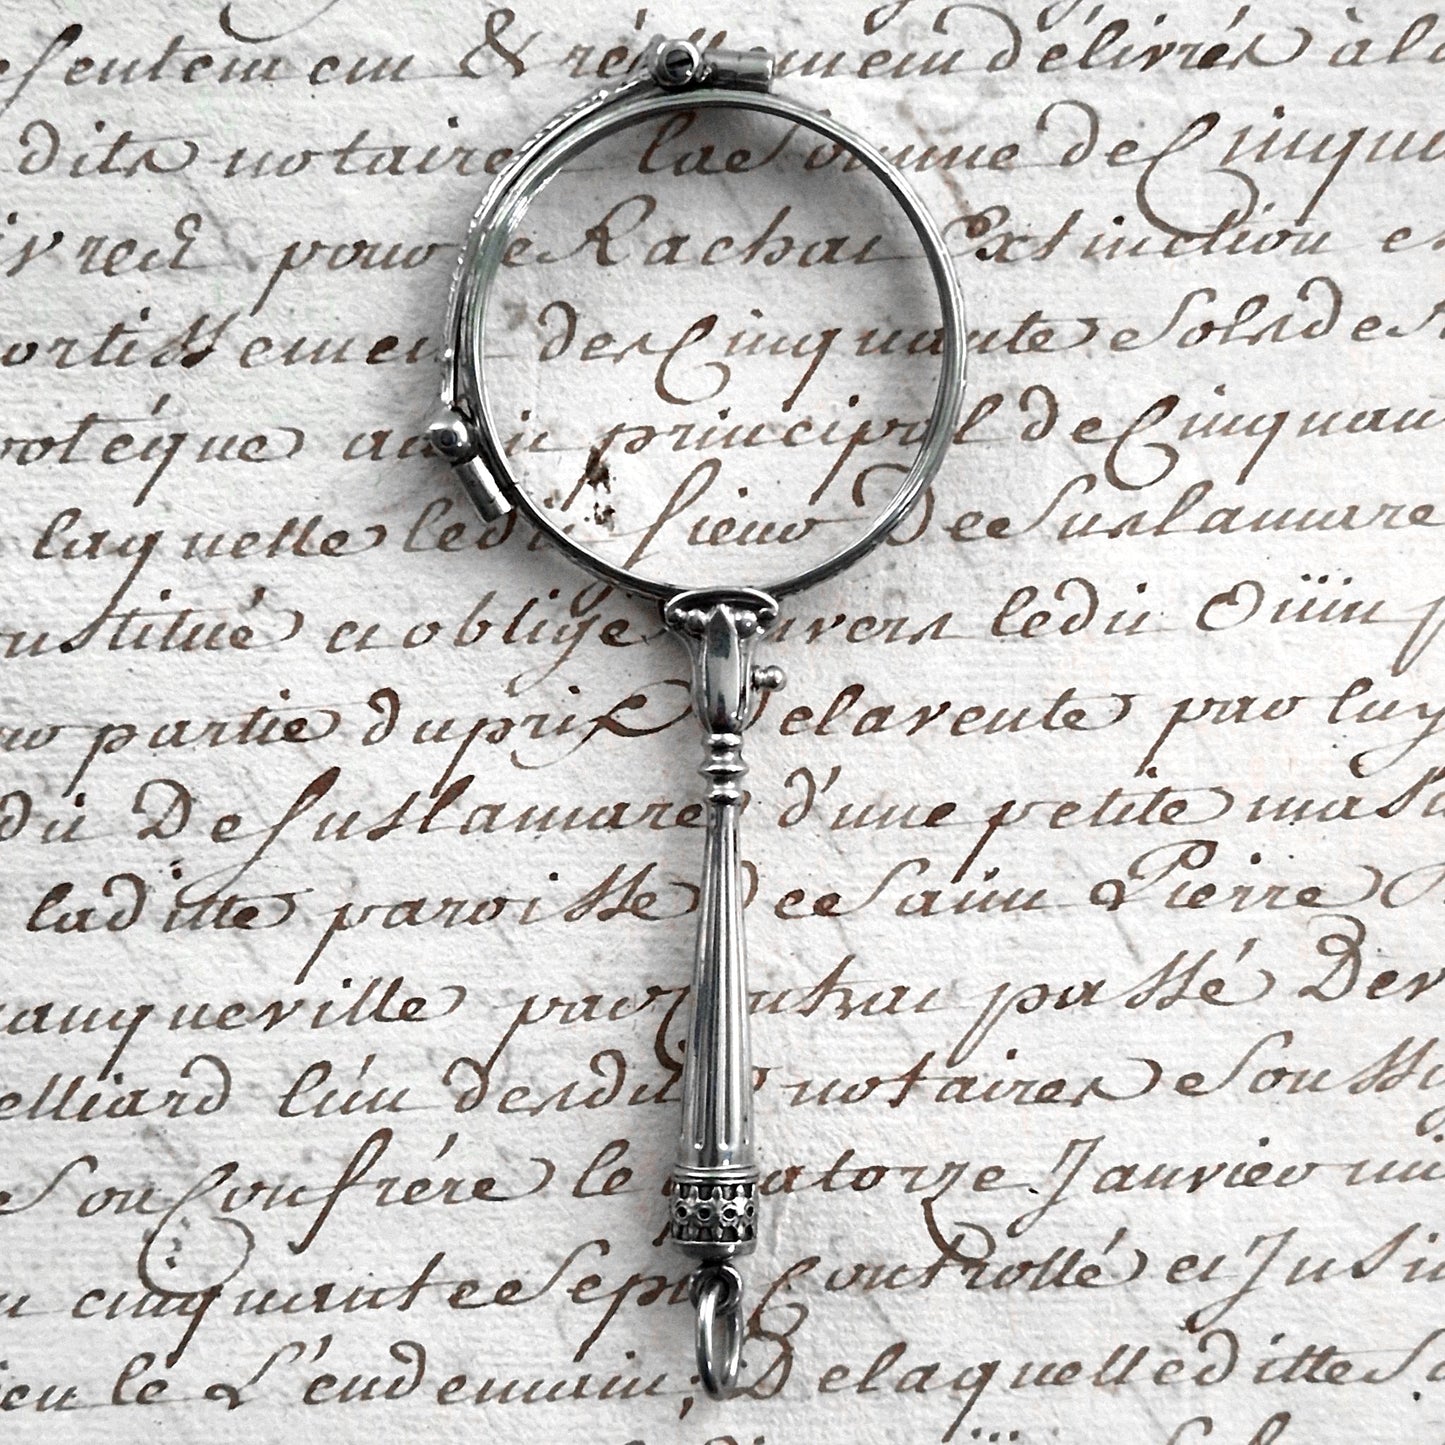 sentement & réellement délivrés à la
dits notaire la somme de Cinquan
ivres pour le Rachat Extinction et
ortissement des Cinquante sols de
potéque au principal de Cinquan
laquelle ledit sieur De Suslamare
nstitué et obligé envers ledit
partie du prix de la vente par luy
du De Suslamare d'une petite
laditte paroisse de Saint Pierre
anqueville par contrat passé Dev
elliard l'un desdits notaires & son
& son Confrére le quatorze Janvier mi
cinquante & sept Controllé et
le L'endemain; De laquelle ditte